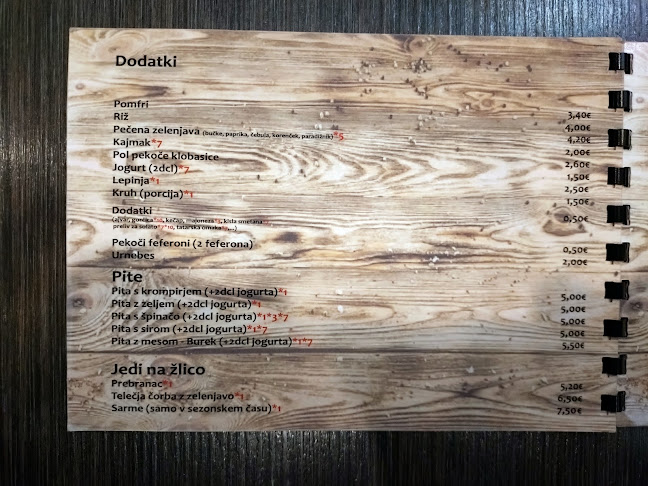 Dodatki
Pomfri 3,40€
Riž 4,00€
Pečena zelenjava (bučke, paprika, čebula, korenček, paradižnik)*5 4,20€
Kajmak*7 2,00€
Pol pekoče klobasice 2,60€
Jogurt (2dcl)*7 1,50€
Lepinja*1 2,50€
Kruh (porcija)*1 1,50€
Dodatki 0,50€
(ajvar, gorčica*10, kečap, majoneza*3, kisla smetana*7,
preliv za solato*7*10, tatarska omaka*3,...)
Pekoči feferoni (2 feferona) 0,50€
Urnebes 2,00€
Pite
Pita s krompirjem (+2dcl jogurta)*1 5,00€
Pita z zeljem (+2dcl jogurta)*1 5,00€
Pita s špinačo (+2dcl jogurta)*1*3*7 5,00€
Pita s sirom (+2dcl jogurta)*1*7 5,00€
Pita z mesom - Burek (+2dcl jogurta)*1*7 5,50€
Jedi na žlico
Prebranac*1 5,20€
Telečja čorba z zelenjavo*1 6,50€
Sarme (samo v sezonskem času)*1 7,50€